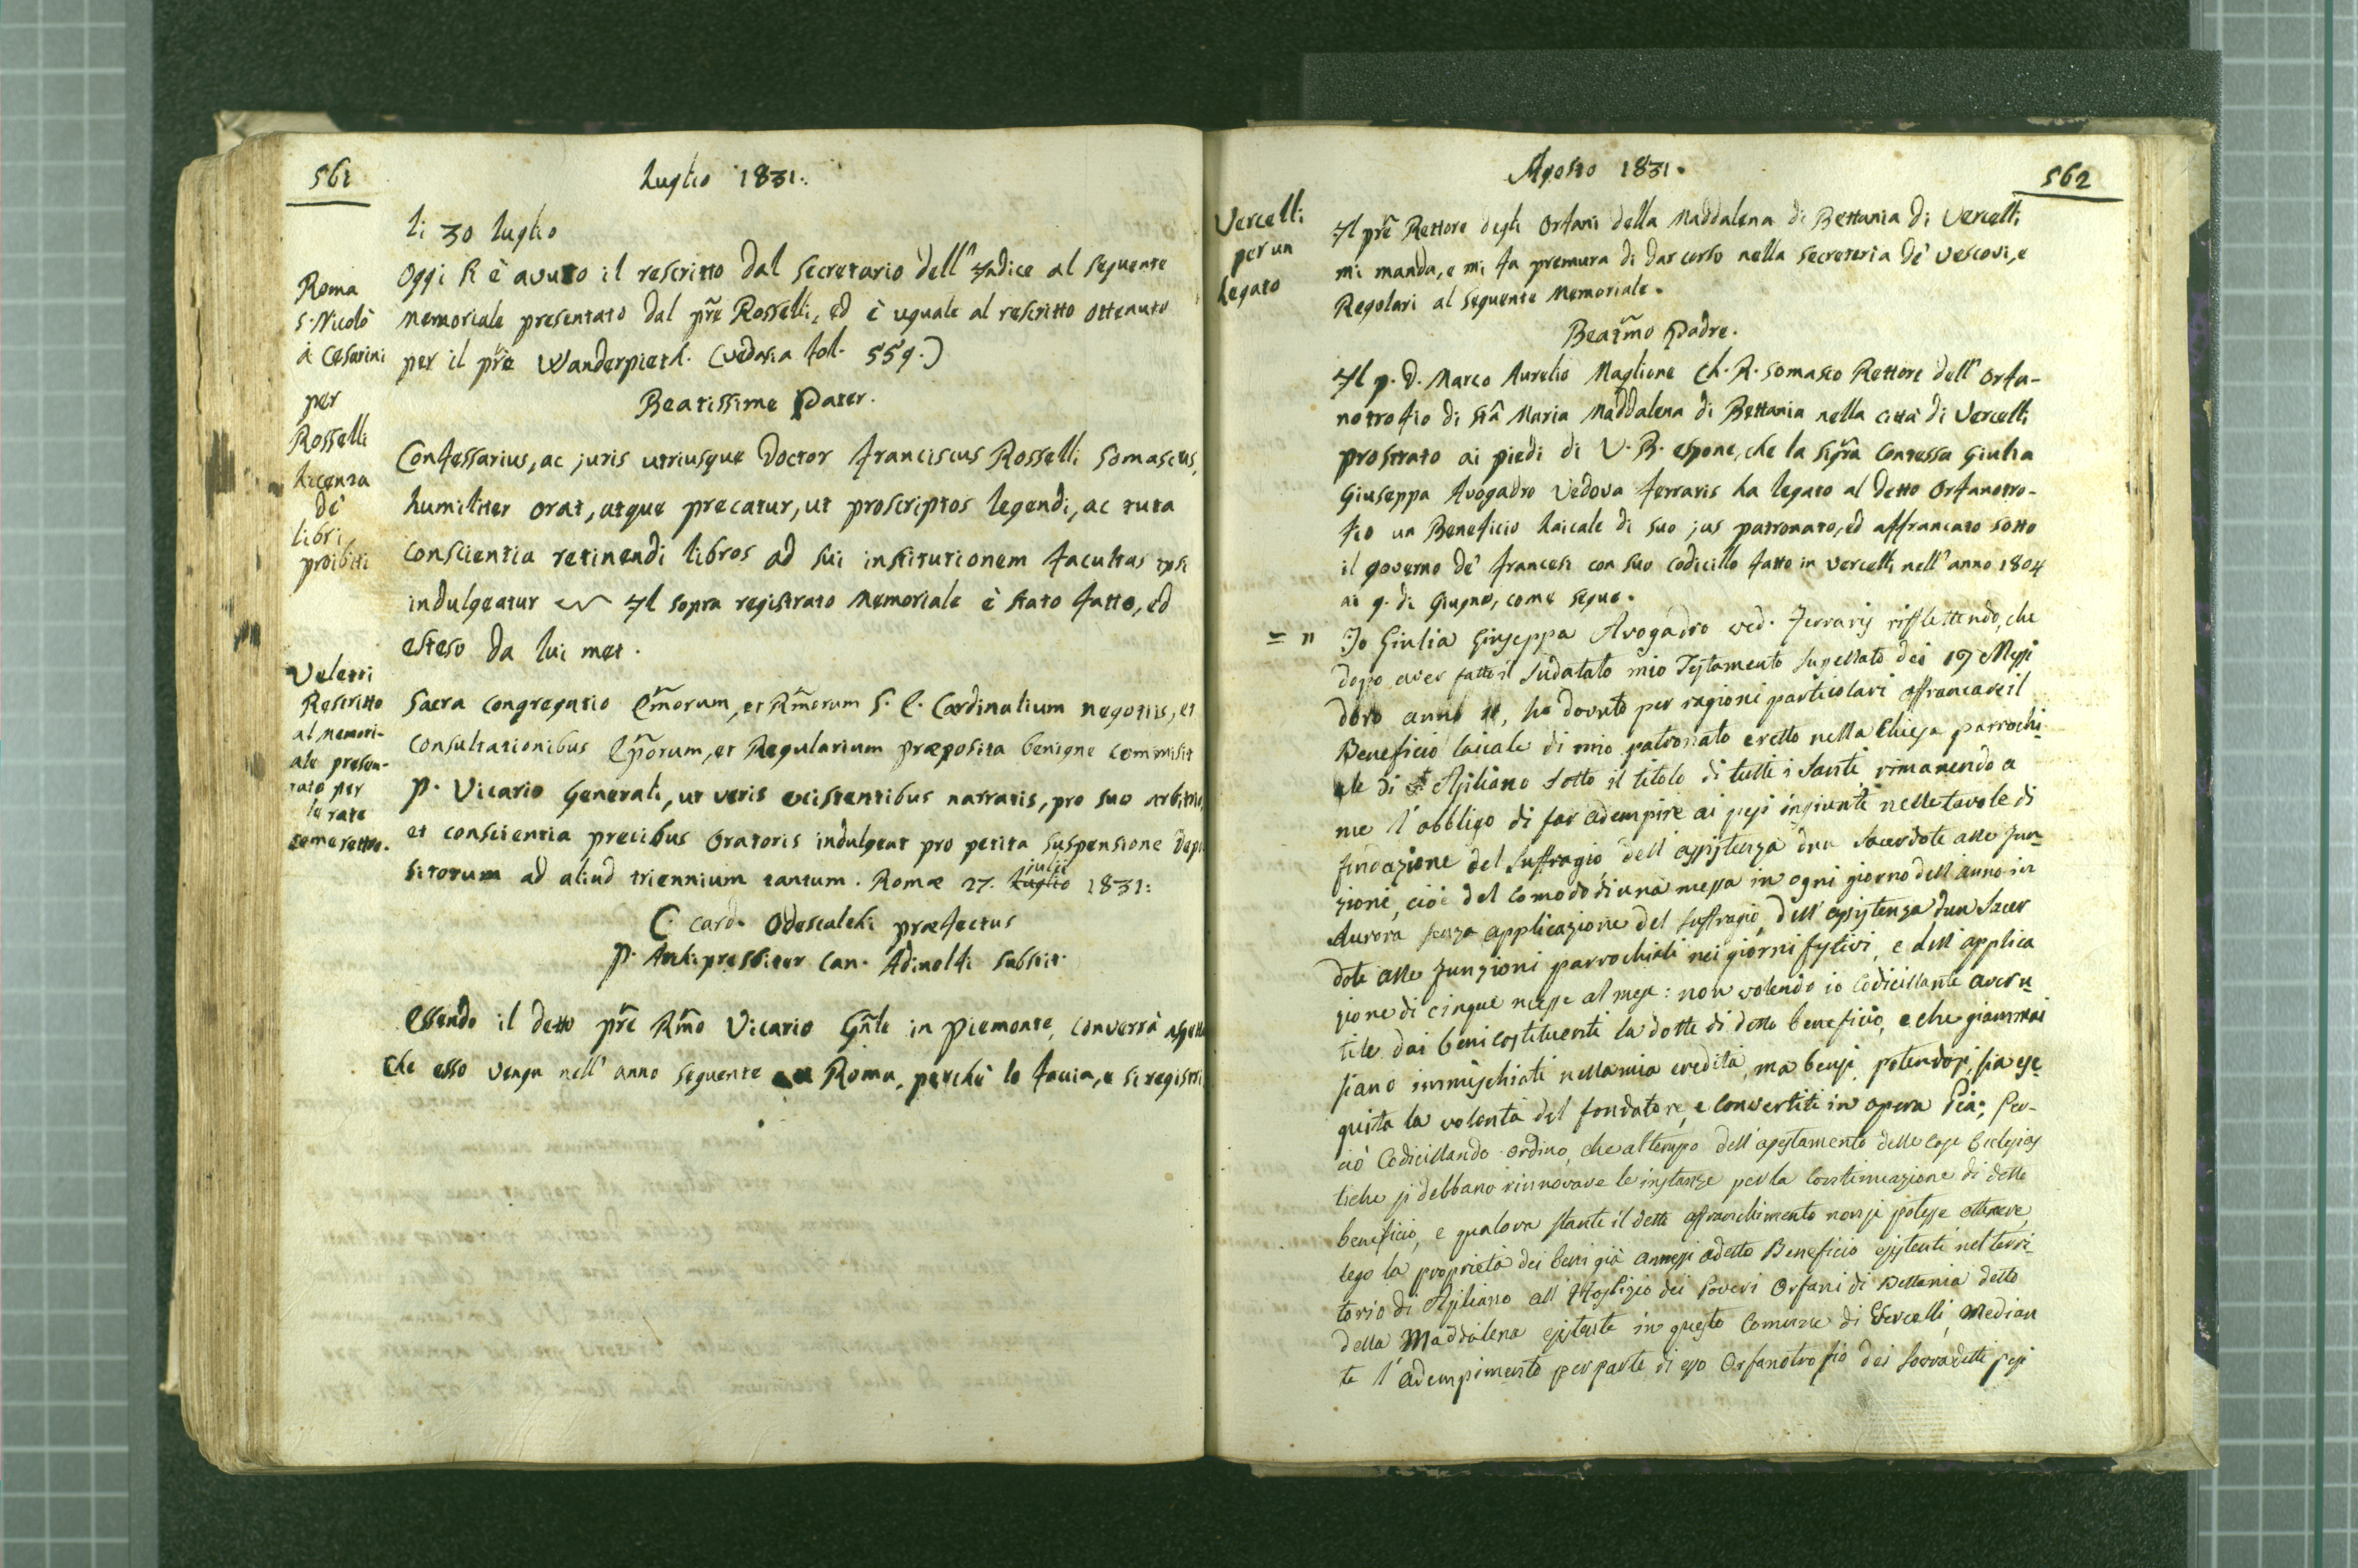 561
Luglio 1831.
li 30 luglio
Oggi si è avuto il rescritto dal secretario dell'Indice al seguente
memoriale presentato dal pre Rosselli, ed è uguale al rescritto ottenuto
per il pre Wanderpieth. (vedasi a fol. 559.)
Roma
S. Nicolò
à Cesarini
per
Rosselli
licenza
de'
libri
proibiti
Beatissime Pater.
Confessarius, ac juris utriusque Doctor Franciscus Rosselli Somascus,
humiliter orat, atque precatur, ut proscriptos legendi, ac tuta
conscientia retinendi libros ad sui institutionem facultas ipsi
indulgeatur Il sopra registrato memoriale è stato fatto, ed
esteso da lui met.
Veletri
Rescritto
al memori-
ale presen-
tato per
le rate
come retro.
Sacra Congregatio Emorum, et Rmorum S. E. Cardinalium negotiis, et
consultationibus Eporum, et Regularium præposita benigne commisit
P. Vicario Generali, ut veris existentibus narratis, pro suo arbitrio,
et conscientia precibus Oratoris indulgeat pro petita suspensione depo
sitorum ad aliud triennium tantum. Romæ 27. Luglio julii 1831:
C. card. Odescalchi præfectus
P. Archipresbiter Can. Adinolfi substit.
Essendo il detto pre Rmo Vicario Gnle in Piemonte, converrà aspett
che esso venga nell'anno seguente a Roma, perchè lo faccia, e si registri
562
Agosto 1831.
Vercelli
per un
legato
Il pre Rettore degli Orfani della Maddalena di Bettania di Vercelli
mi manda, e mi fa premura di dar corso nella secreteria de' Vescovi, e
Regolari al seguente Memoriale.
Beatmo Padre.
Il p. D. Marco Aurelio Maglione Ch. R. Somasco Rettore dell'Orfa-
notrofio di Sta Maria Maddalena di Bettania nella città di Vercelli
prostrato ai piedi di V. B. espone, che la Sigra Contessa Giulia
Giuseppa Avogadro Vedova Ferraris ha legato al detto Orfanotro-
fio un Beneficio laicale di suo jus patronato, ed affrancato sotto
il governo de' Francesi con suo codicillo fatto in Vercelli nell'anno 1804
ai 9. di Giugno, come segue.
= " Io Giulia Giuseppa Avogadro ved. Ferraris riflettendo, che
dopo aver fatto il sudatato mio Testamento supellato dei 19 Messi
doro anno 11, ho dovuto per ragioni particolari affrancare il
Beneficio laicale di mio patronato eretto nella Chiesa parrochi-
ale di Asiliano sotto il titolo di tutti i Santi, rimanendo a
me l'obbligo di far adempire ai pesi ingiunti nelle tavole di
fondazione del suffragio, dell'assistenza d'un Sacerdote alle fun-
zioni, cioè del comodo di una messa in ogni giorno dell'anno in
Aurora senza applicazione del suffragio, dell'assistenza d'un Sacer
dote alle funzioni parrochiali nei giorni festivi, e dell'applica
zione di cinque messe al mese: non volendo io Codicillante aver u-
tile dai beni costituenti la dotte di detto beneficio, e che giammai
siano immischiati nella mia eredità, ma bensì, potendosi, sia ese-
guita la volontà del fondatore, e convertiti in opera Pia; Per-
ciò Codicillando ordino, che al tempo dell'assestamento delle cose Ecclesias
tiche si debbano rinnovare le instanze per la continuazione di detto
beneficio, e qualora stante il detto affranchimento non si potesse ottenere,
lego la proprietà dei beni già annessi a detto Beneficio esistenti nel terri-
torio di Asiliano all'Hospizio dei Poveri Orfani di Bettania detto
della Maddalena esistente in questo Comune di Vercelli, median
te l'adempimento per parte di esso Orfanotrofio dei sovradetti pesi